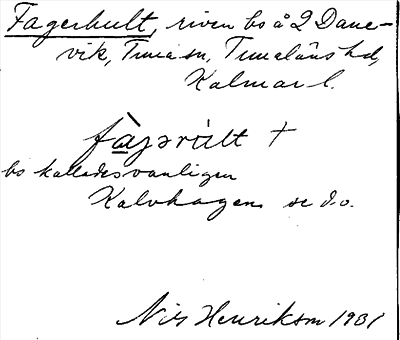 Fagerhult, riven bs å 2 Dane-
vik, Tuna sn, Tunaläns hd,
Kalmar l.
fàgərúlt +
bs kallades vanligen
Kalvhagen se d.o.
Nils Henriksson 1931